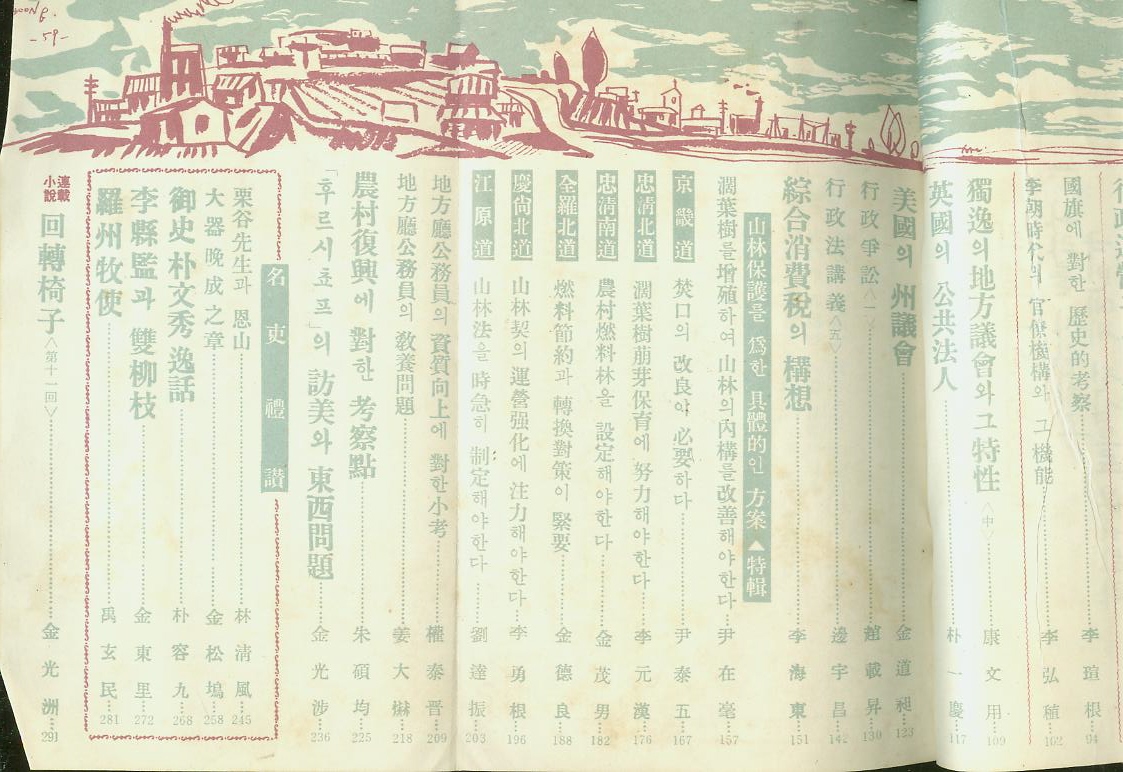 國旗에 對한 歷史的考察 李瑄根 94
李朝時代의 官僚機構와 그 機能 李弘稙 102
獨逸의 地方議會와 그 特性 <中> 康文用 109
英國의 公共法人 朴一慶 117
美國의 州議會 金道昶 123
行政爭訟<一> 趙載昇 130
行政法講義<五> 邊宇昌 142
綜合消費稅의 構想 李海東 151
山林保護를 爲한 具體的인 方案 ▲特輯
濶葉樹를 增殖하여 山林의 內構를 改善해야한다 尹在毫 157
京畿道 焚口의 改良이 必要하다 尹泰五 167
忠淸北道 濶葉樹萠芽保育에 努力해야한다 李元漢 176
忠淸南道 農村燃料林을 設定해야한다 金茂男 182
全羅北道 燃料節約과 轉換對策이 緊要 金德良 188
慶尙北道 山林契의 運營强化에 注力해야한다 李勇根 196
江原道 山林法을 時急히 制定해야한다 劉達振 203
地方廳公務員의 資質向上에 對한 小考 權泰晋 209
地方廳公務員의 敎養問題 姜大 218
農村復興에 對한 考察點 朱碩均 225
「후르시쵸프」의 訪美와 東西問題 金光涉 236
名吏禮讃
栗谷先生과 恩山 林淸風 245
大器晩成之章 金松塢 258
御史朴文秀逸話 朴容九 268
李縣監과 雙柳枝 金東里 272
羅州牧使 禹玄民 281
連載小說 回轉椅子<第十一回> 金光洲 291
-59-